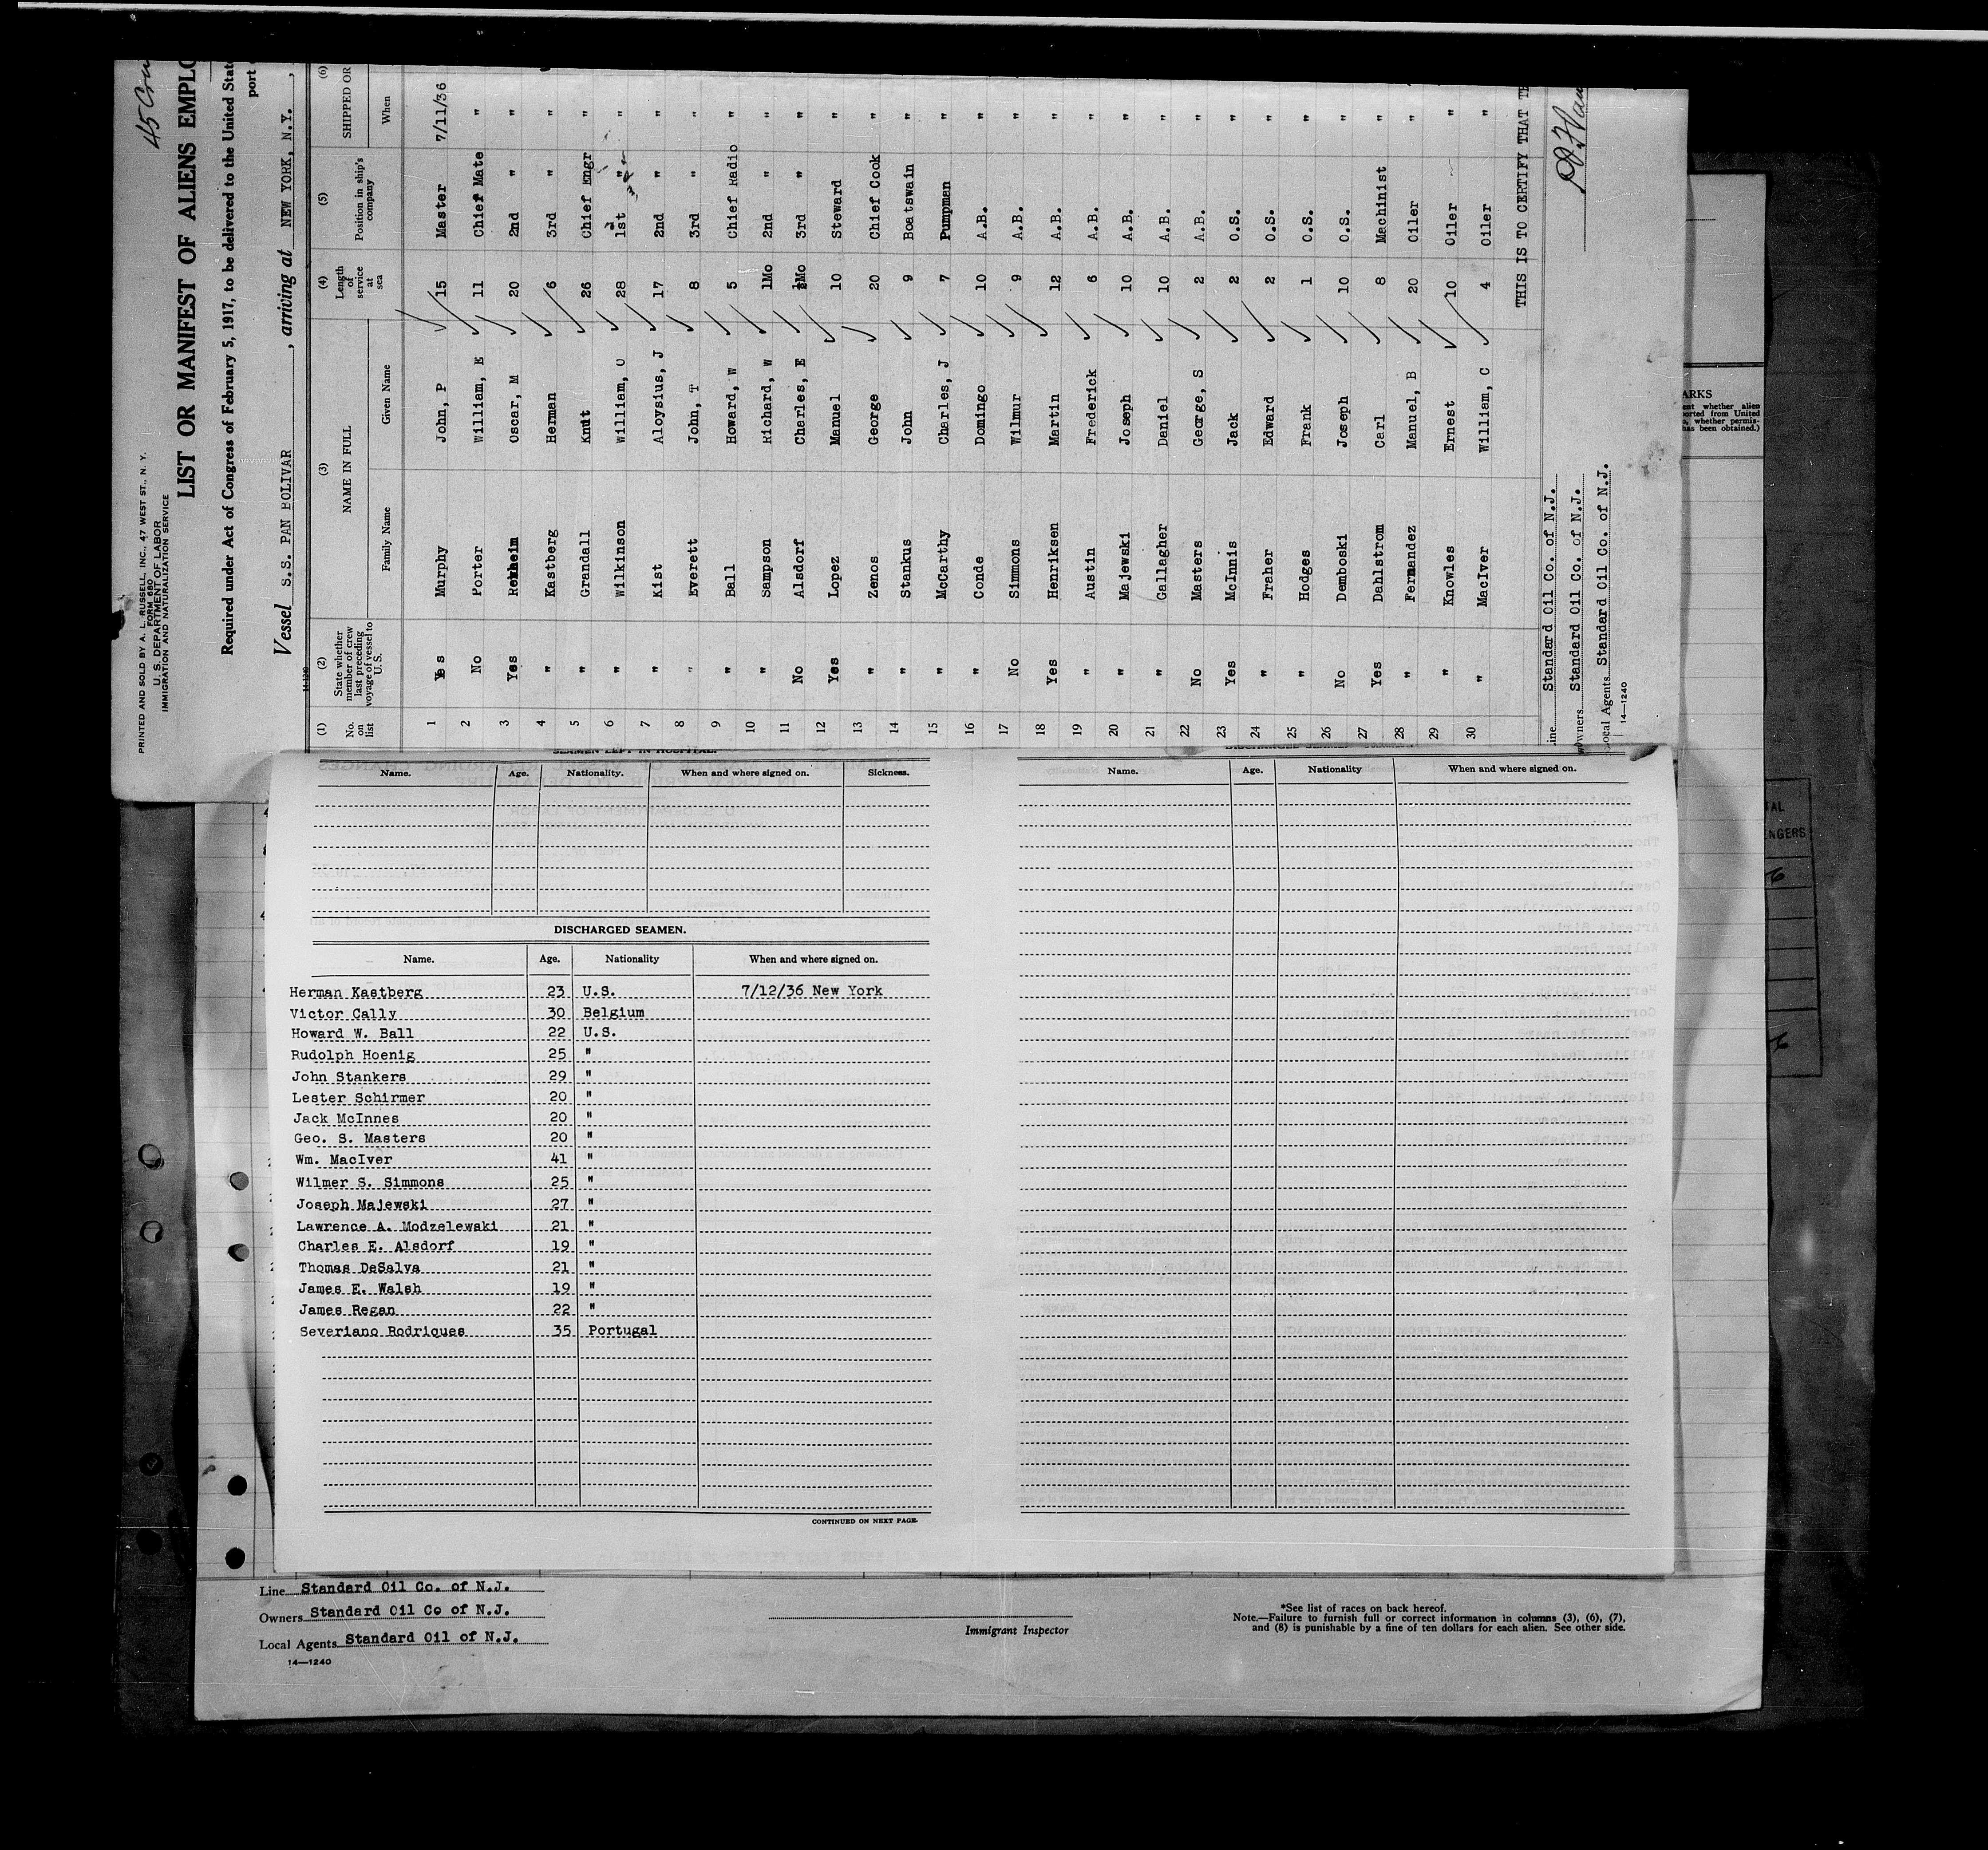 PRINTED AND SOLD BY A. L. RUSSELL, INC., 47 WEST ST., N. Y.
FORM 680
U. S. DEPARTMENT OF LABOR
IMMIGRATION AND NATURALIZATION SERVICE
45
LIST OR MANIFEST OF ALIENS EMPLO
Required under Act of Congress of February 5, 1917, to be delivered to the United Stat
port
Vessel S.S. PAN BOLIVAR , arriving at NEW YORK, N.Y. ,
(1) (2) (3) (4) (5) (6)
No. on list State whether member of crew last preceding voyage of vessel to U. S. NAME IN FULL Length of service at sea Position in ship's company SHIPPED OR
Family Name Given Name When
1 Yes Murphy John, P 15 Master 7/11/36
2 No Porter William, E 11 Chief Mate "
3 Yes Rekheim Oscar, M 20 2nd " "
4 " Kastberg Herman 6 3rd " "
5 " Grandall Knut 26 Chief Engr "
6 " Wilkinson William, O 28 1st " "
7 " Kist Aloysius, J 17 2nd " "
8 " Everett John, T 8 3rd " "
9 " Ball Howard, W 5 Chief Radio "
10 " Sampson Richard, W 1Mo 2nd " "
11 No Alsdorf Charles, E ½Mo 3rd " "
12 Yes Lopez Manuel 10 Steward "
13 " Zenos George 20 Chief Cook "
14 " Stankus John 9 Boatswain "
15 " McCarthy Charles, J 7 Pumpman "
16 " Conde Domingo 10 A.B. "
17 No Simmons Wilmur 9 A.B. "
18 Yes Henriksen Martin 12 A.B. "
19 " Austin Frederick 6 A.B. "
20 " Majewski Joseph 10 A.B. "
21 " Gallagher Daniel 10 A.B. "
22 No Masters George, S 2 A.B. "
23 Yes McInnis Jack 2 O.S. "
24 " Fraher Edward 2 O.S. "
25 " Hodges Frank 1 O.S. "
26 No Demboski Joseph 10 O.S. "
27 Yes Dahlstrom Carl 8 Machinist "
28 " Fernandez Manuel, B 20 Oiler "
29 " Knowles Ernest 10 Oiler "
30 " MacIver William, C 4 Oiler "
THIS IS TO CERTIFY THAT
ine Standard Oil Co. of N.J.
wners Standard Oil Co. of N.J.
ocal Agents Standard Oil Co. of N.J.
14—1240
ARKS
ent whether alien
ported from United
o, whether permis-
has been obtained.)
TAL
ENGERS
SEAMEN LEFT IN HOSPITAL.
Name. Age. Nationality. When and where signed on. Sickness.
DISCHARGED SEAMEN.
Name. Age. Nationality When and where signed on.
Herman Kastberg 23 U.S. 7/12/36 New York
Victor Cally 30 Belgium
Howard W. Ball 22 U.S.
Rudolph Hoenig 25 "
John Stankers 29 "
Lester Schirmer 20 "
Jack McInnes 20 "
Geo. S. Masters 20 "
Wm. MacIver 41 "
Wilmer S. Simmons 25 "
Joseph Majewski 27 "
Lawrence A. Modzelewski 21 "
Charles E. Alsdorf 19 "
Thomas DeSalva 21 "
James E. Walsh 19 "
James Regan 22 "
Severiano Rodriques 35 Portugal
CONTINUED ON NEXT PAGE.
Name. Age. Nationality When and where signed on.
Line Standard Oil Co. of N.J.
Owners Standard Oil Co of N.J.
Local Agents Standard Oil of N.J.
14—1240
Immigrant Inspector
*See list of races on back hereof.
Note.—Failure to furnish full or correct information in columns (3), (6), (7),
and (8) is punishable by a fine of ten dollars for each alien. See other side.